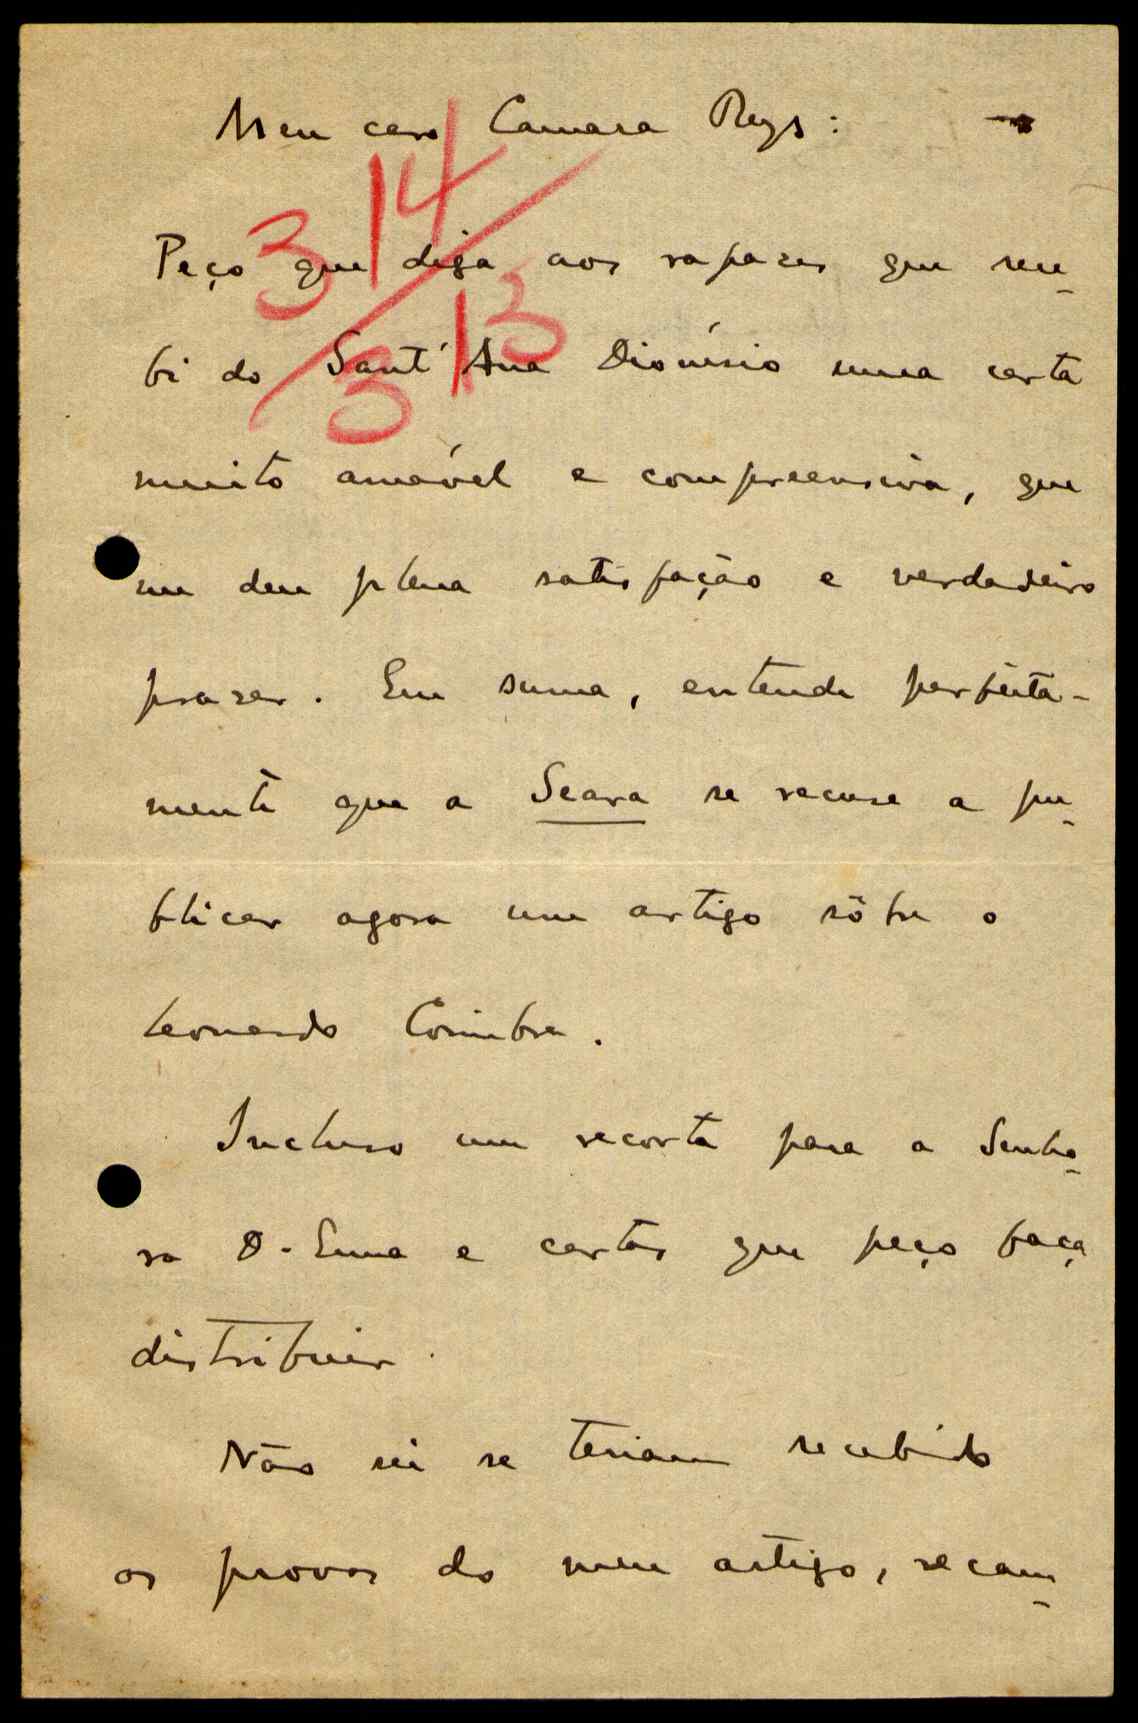 Meu caro Camara Reys:
314
313
Peço que diga aos rapazes que rece-
bi do Sant'Ana Dionísio uma carta
muito amável e compreensiva, que
me deu plena satisfação e verdadeiro
prazer. Em suma, entende perfeita-
mente que a Seara se recuse a pu-
blicar agora um artigo sôbre o
Leonardo Coimbra.
Incluso um recorte para a Senho-
ra D. Ema e cartas que peço faça
distribuir.
Não sei se teriam recebido
as provas do meu artigo, recam-